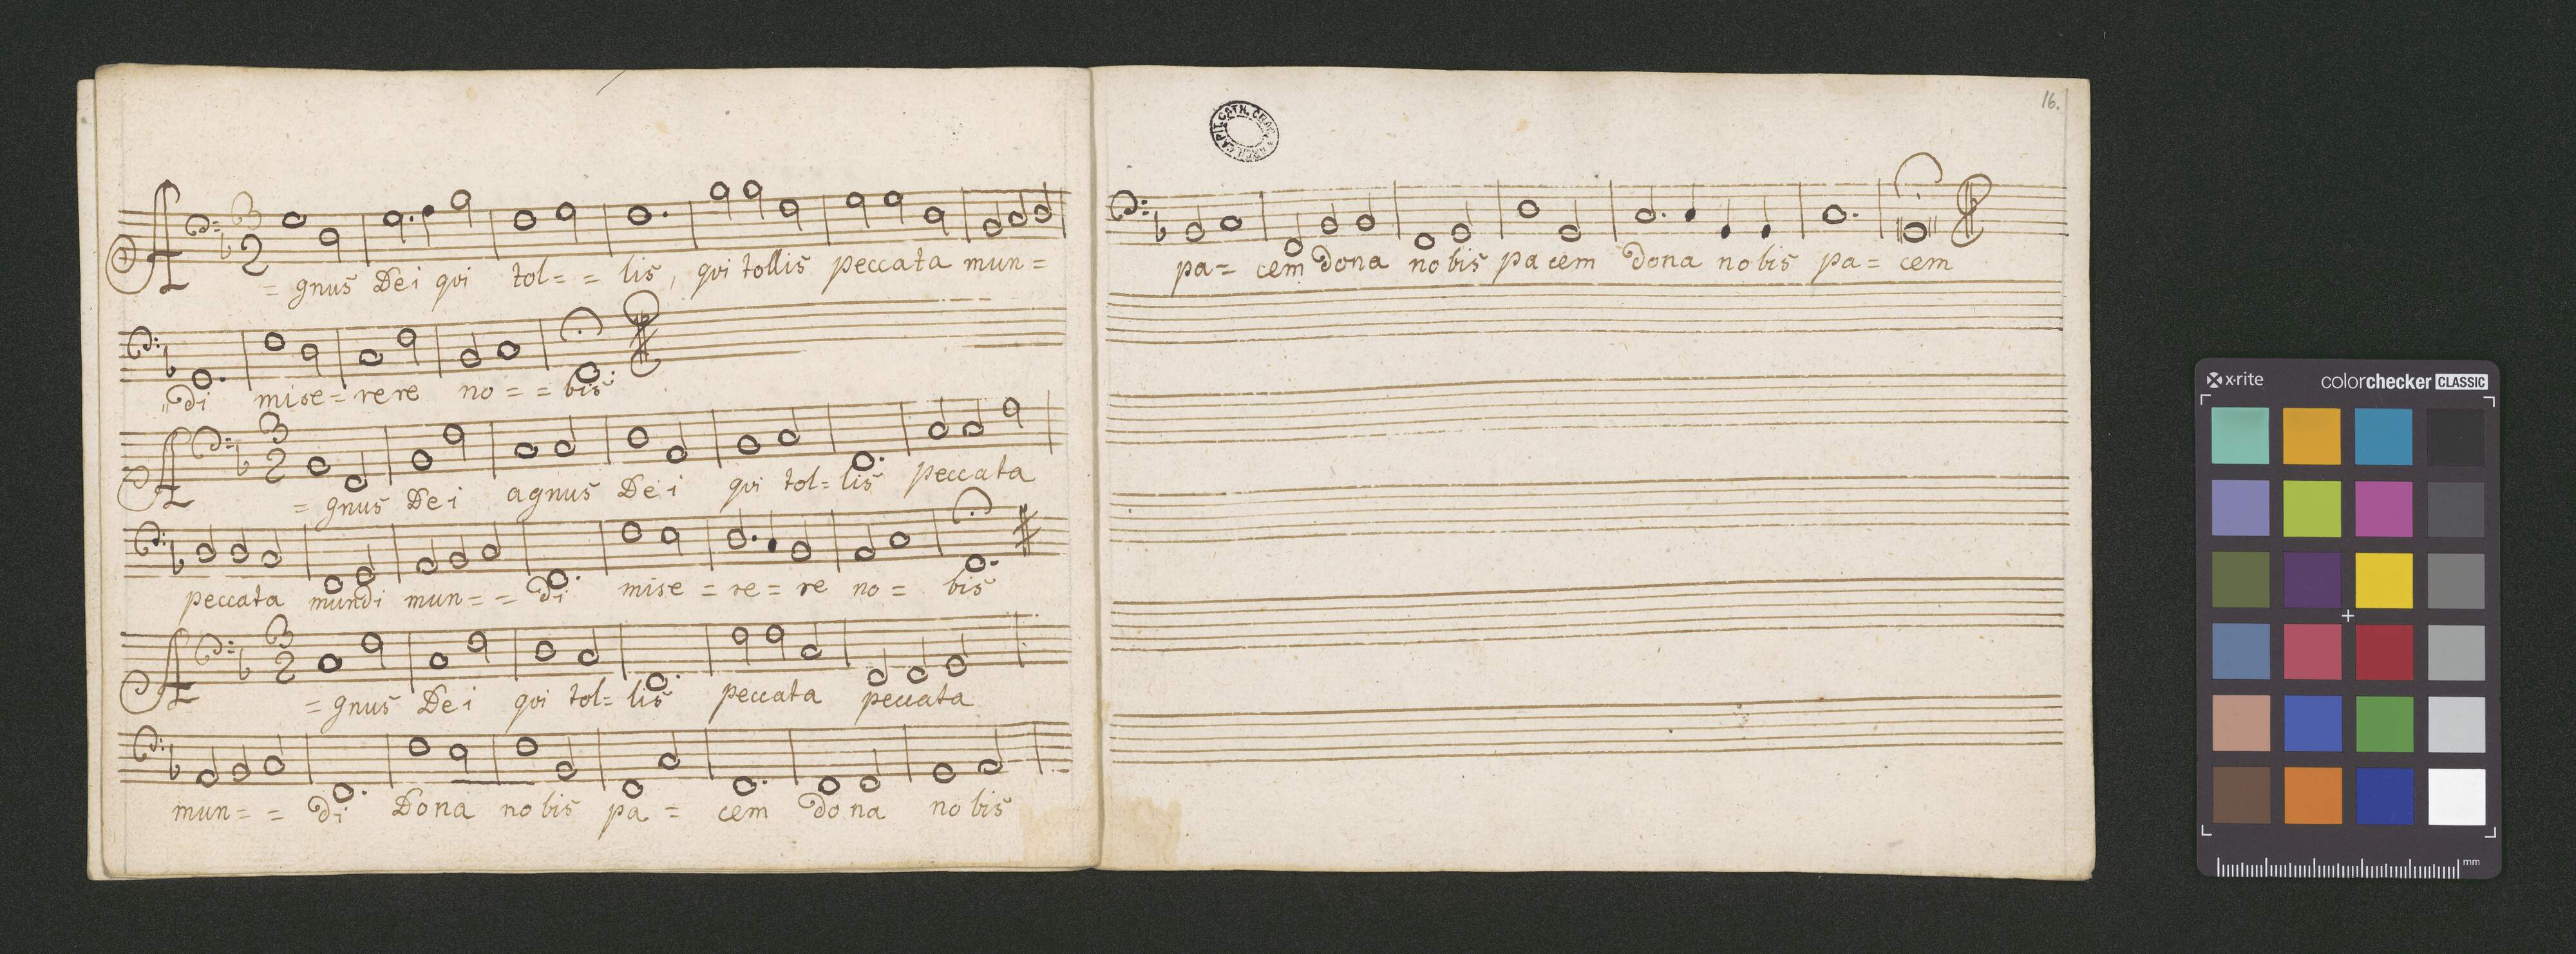 A=gnus Dei qui tol== lis, qui tollis peccata mun=
"di mise=rere no==bis
A=gnus Dei agnus Dei qui tol=lis peccata
peccata mundi mun==di mise=re=re no=bis
A=gnus Dei qui tol=lis peccata peccata
mun==di Dona nobis pa=cem dona nobis
16.
ARCH. CAPIT. CATH. CRAC.
pa=cem dona nobis pa cem dona nobis pa=cem
x-rite
colorchecker CLASSIC
mm